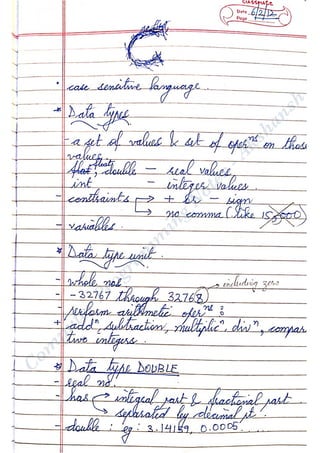 classmate
Date 6/2/12
Page
C
• case sensitive language.
* Data types
- a set of values & set of oper^ns on those
values
float, double – real values
int – integer values.
- constraints → + or – sign
→ no comma (like 15,000)
- variables.
* Data type unit.
- whole nos.
- -32767 through 32768) → including zero
- perform arithmetic oper^ns :
+ add^n, subtraction, multiplic^n, div^n, compar
two integers.
* Data type DOUBLE
- real no.
- has → integral part & fractional part.
→ separated by decimal pt.
- double : eg: 3.14159, 0.0005